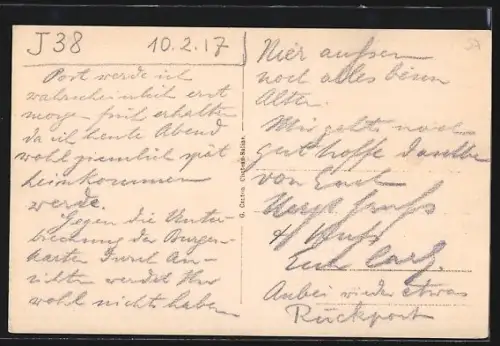 J 38 10.2.17
Post werde ich
wahrscheinlich erst
morgen früh erhalten
da ich heute Abend
wohl ziemlich spät
heimkommen
werde.
Gegen die Unter-
brechung der Burgen-
karten durch An-
sichten werdet Ihr
wohl nichts haben.
Hier aussen
noch alles beim
Alten.
Mir gehts noch
gut hoffe dasselbe
von Euch
Herzl. Gruss
& Kuss
Euer Carl.
Anbei wieder etwas
Rückpost